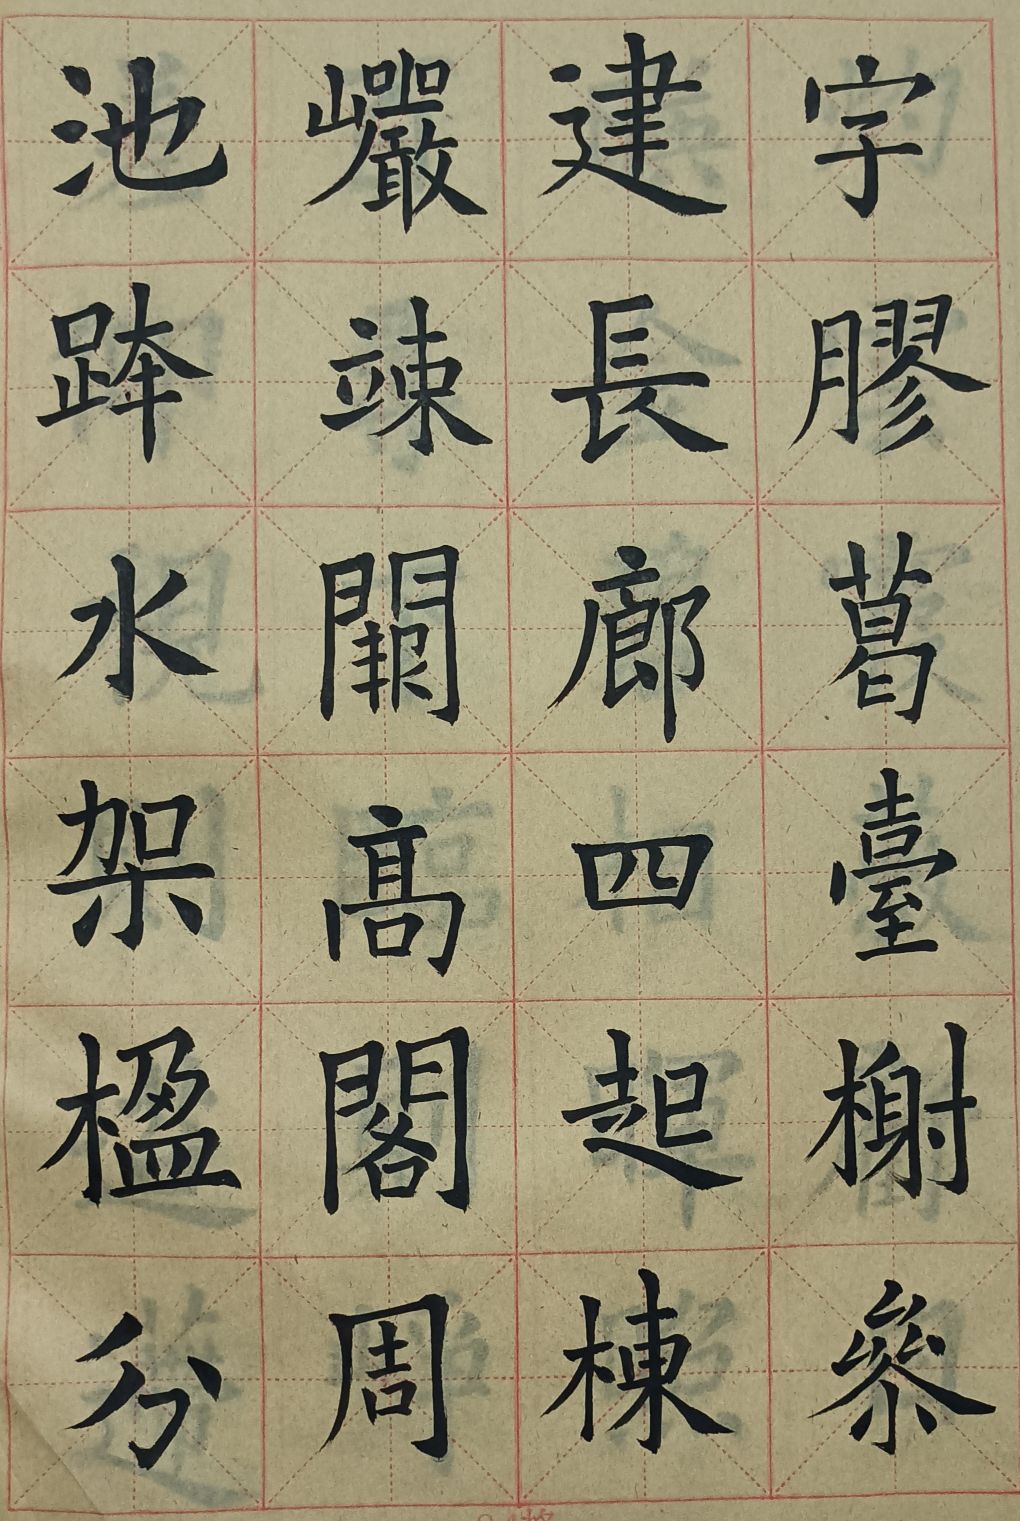 池跨水架楹分
巖竦闕髙閣周
建長廊四起棟
字膠葛臺榭參